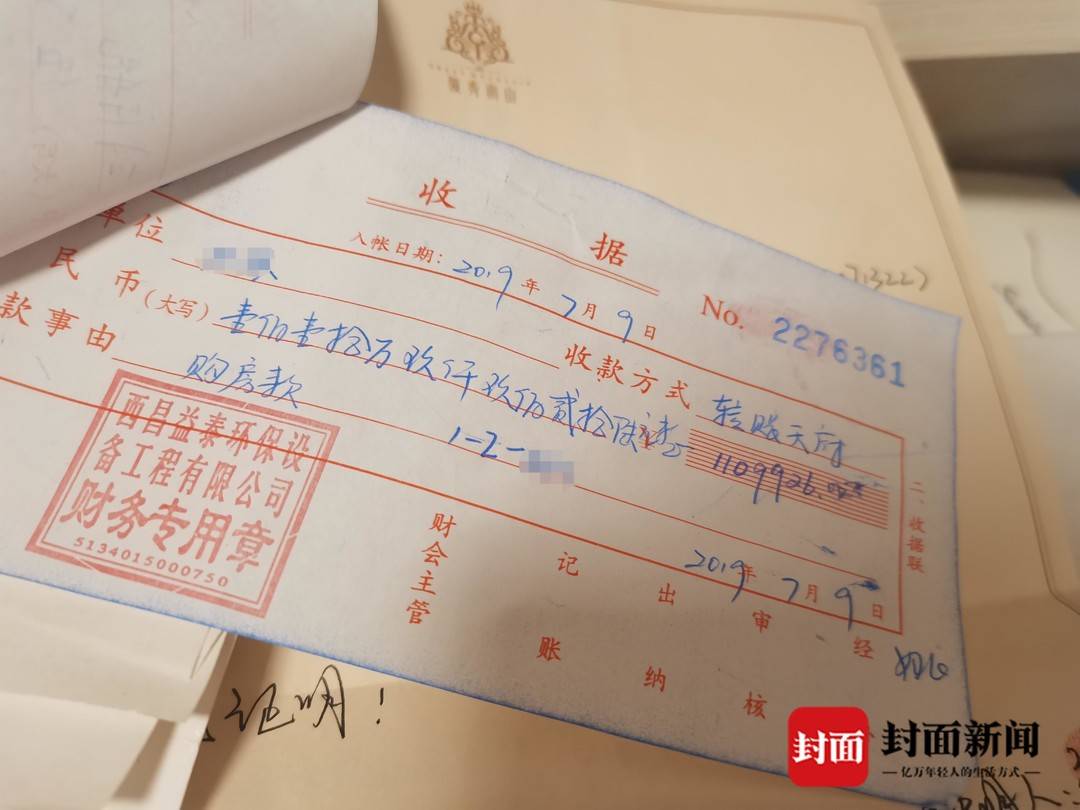 收 据
No. 2276361
入帐日期: 2019年7月9日
单位
收款方式 转账天府
民币(大写) 壹佰壹拾万玖仟玖佰贰拾陆元整
1109926.00
款事由 购房款
1-2-
西昌益泰环保设
备工程有限公司
财务专用章
5134015000750
2019年7月9日
财会主管
记账
出纳
审核
经
二、收据联
71322)
证明!
封面
封面新闻
亿万年轻人的生活方式